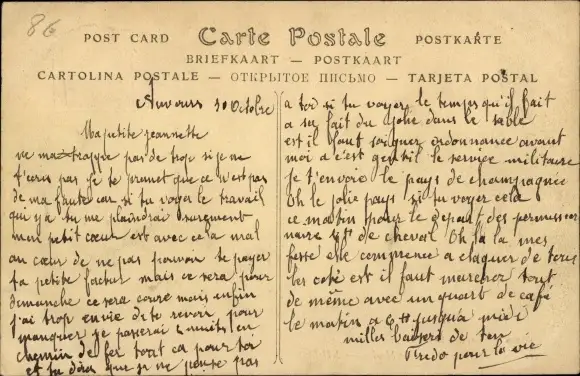 86
POST CARD Carte Postale POSTKARTE
BRIEFKAART — POSTKAART
CARTOLINA POSTALE — ОТКРЫТОЕ ПИСЬМО — TARJETA POSTAL
Auvours 30 Octobre
Ma petite jeannette
ne ma pas de trop si je ne
t'ecris pas je te promet que ce n'est pas
de ma faute car si tu voyer le travail
qui y a tu me plaindrai surement
mon petit cœur est avec cela mal
au cœur de ne pas pouvoir te payer
ta petite mais ce sera pour
dimanche ce sera mais enfin
j'ai trop envie de te revoir pour
manquer je passerai 2 nuits en
chemin de fer tout ca pour toi
et tu diras que je ne pense pas
a toi si tu voyer le temps qu'il fait
a sa fait du jolie dans le sable
est il faut soigner ordonnance avant
moi a c'est gentil le service militaire
je t'envoie le pays de champagnée
Oh le jolie pays si tu voyer cela
ce matin pour le depart des permission
naire de cheval Oh la la mes
fesse elle commence a claquer de tous
les coté est il faut marcher tout
de même avec un quart de café
le matin a 4 H jusqua midi
milles baisers de ton
Fredo pour la vie